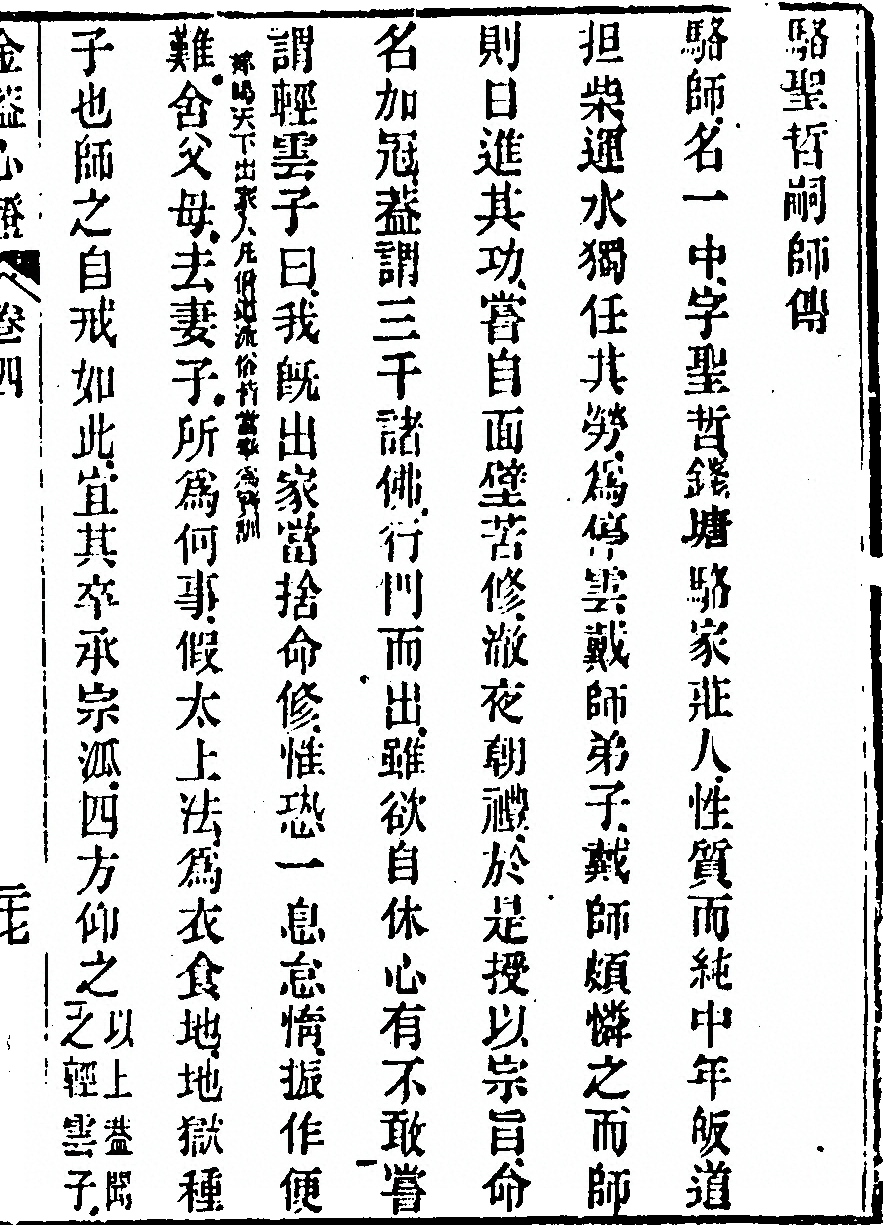 駱聖哲嗣師傳
駱師名一中字聖哲錢塘駱家莊人性質而純中年皈道
担柴運水獨任其勞爲停雲戴師弟子戴師頗憐之而師
則日進其功嘗自面壁苦修澈夜朝禮於是授以宗旨命
名加冠葢謂三千諸佛行門而出雖欲自休心有不敢嘗
謂輕雲子曰我旣出家當捨命修惟恐一息怠惰振作便
難舍父母去妻子所爲何事假太上法爲衣食地地獄種
天下出家人凡俗皆當爲訓
子也師之自戒如此宜其卒承宗派四方仰之
以上葢聞
之輕雲子
金葢心燈 卷四
二七